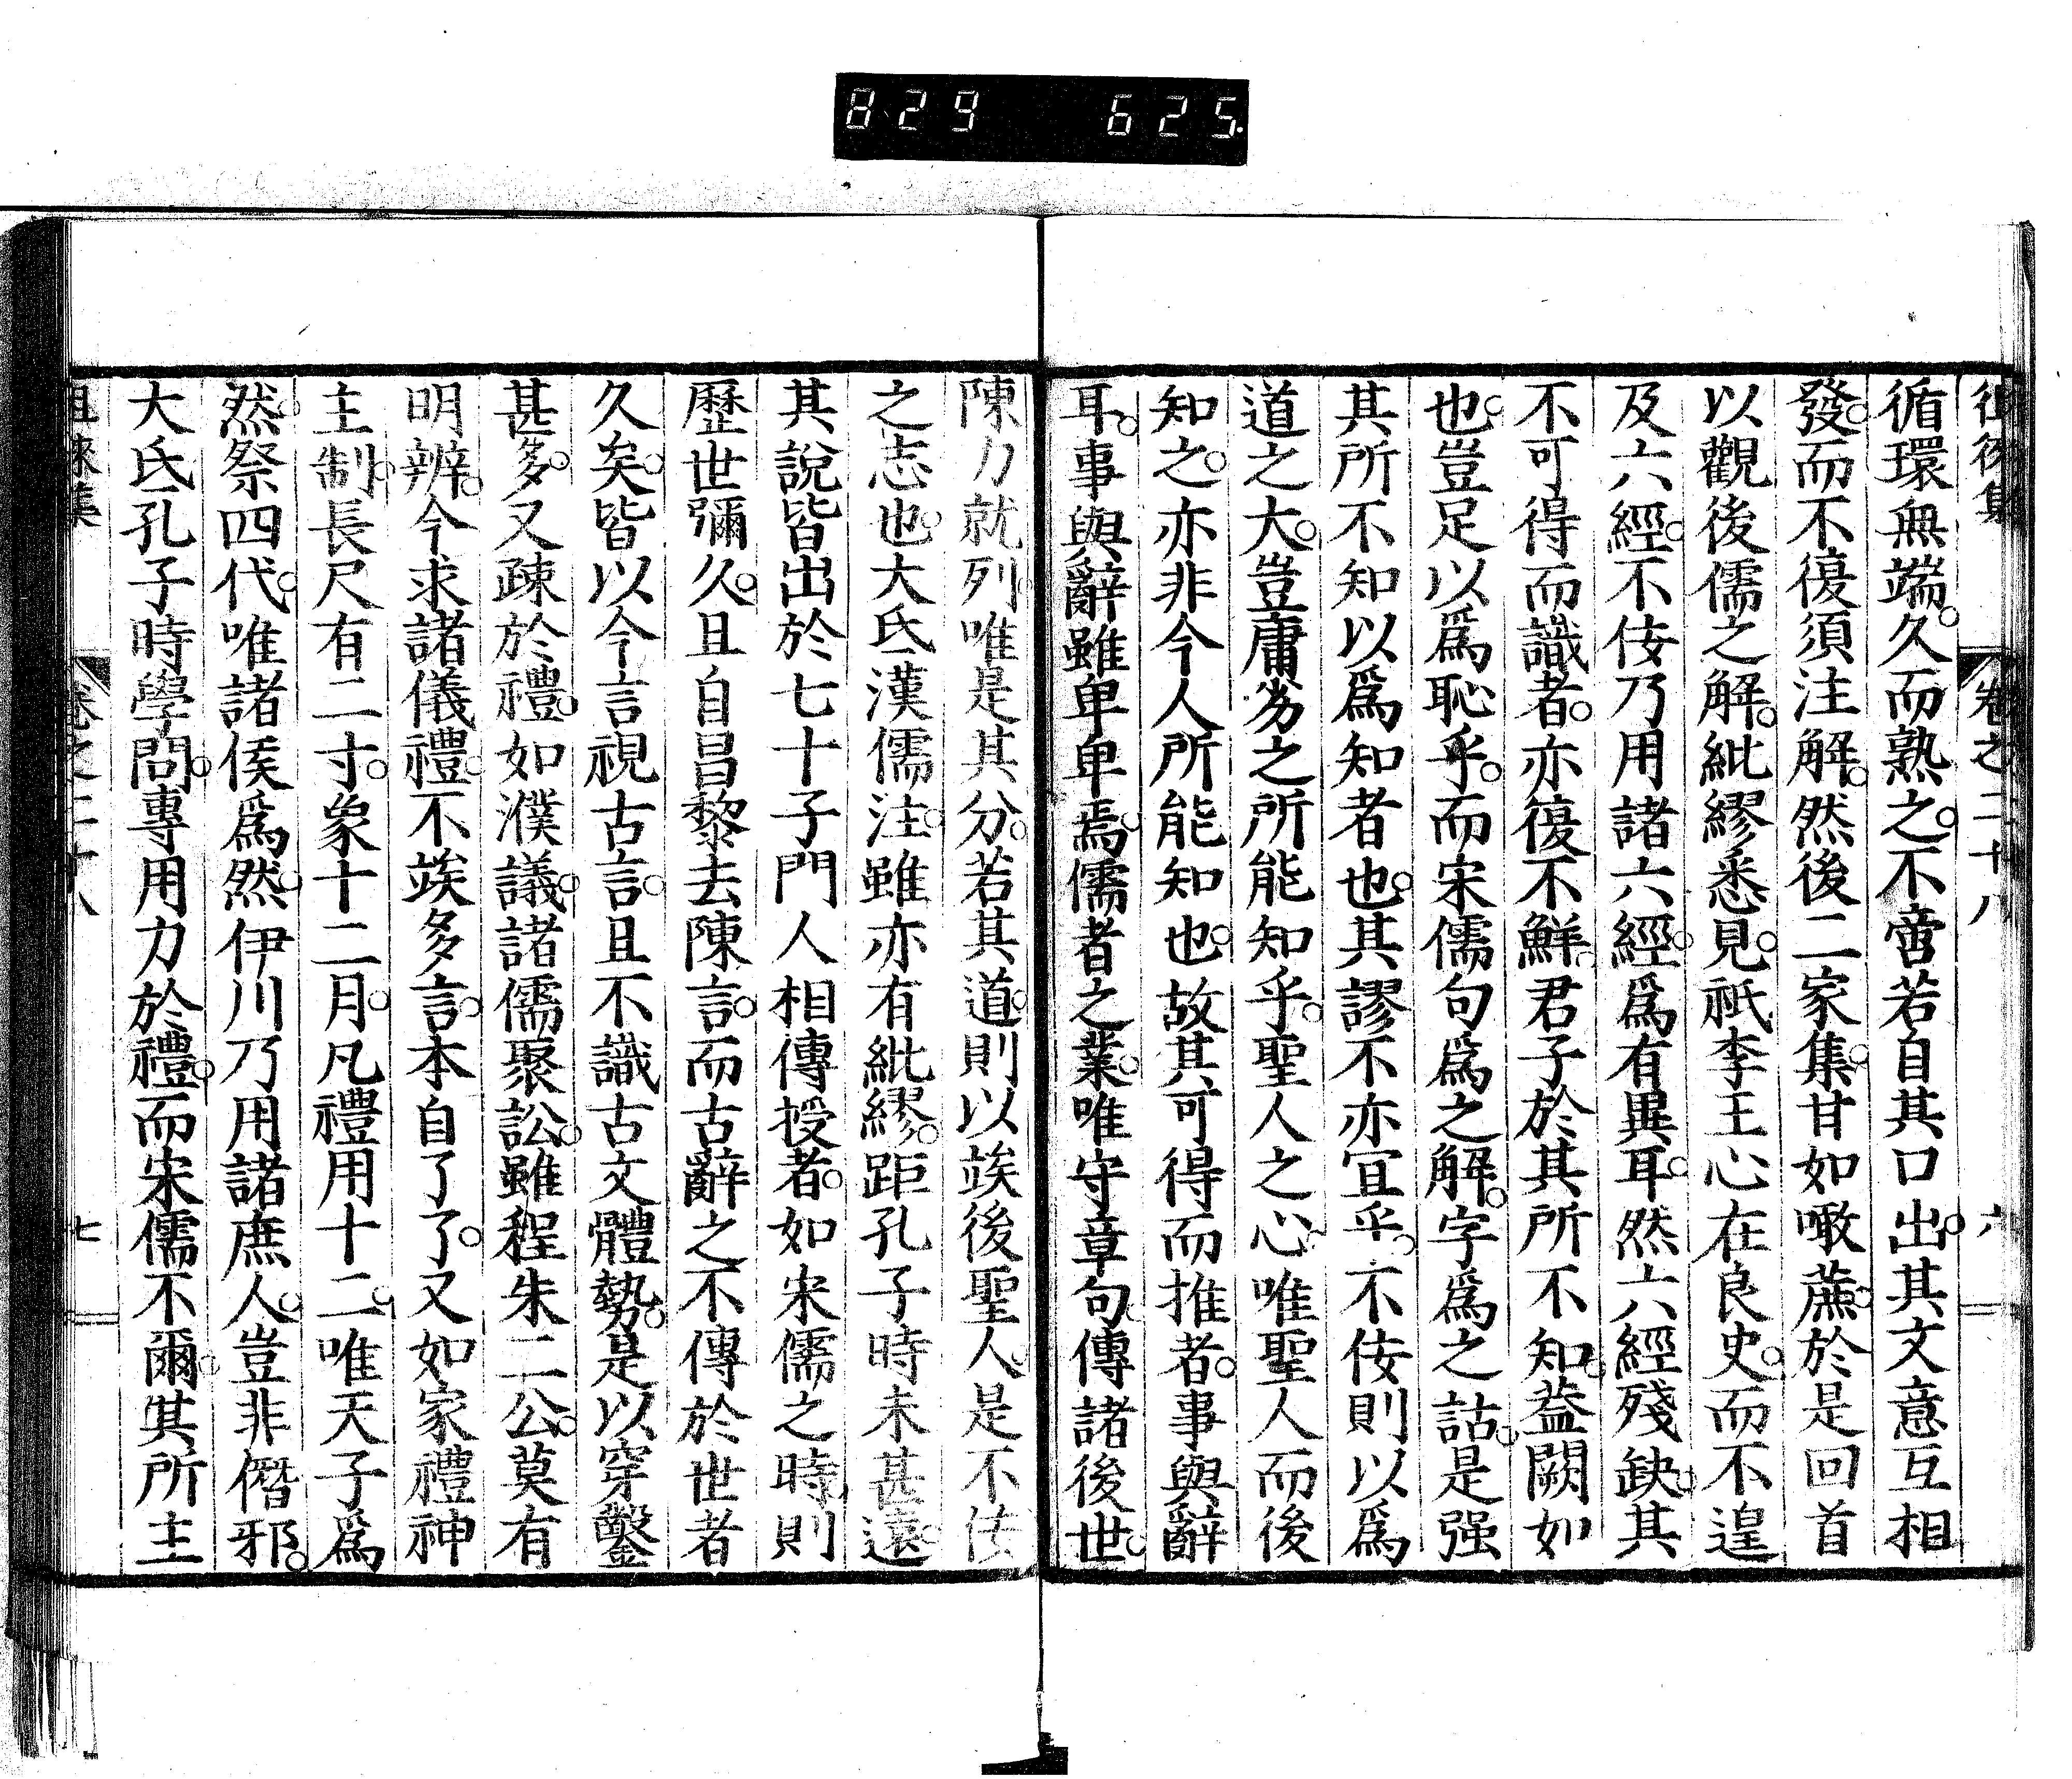 829 625
徂徠集 卷之二十八 六
循環無端。久而熟之。不啻若自其口出。其文意互相
發。而不復須注解。然後二家集。甘如噉蔗。於是回首
以觀後儒之解。紕繆悉見。祇李王心在良史。而不遑
及六經。不佞乃用諸六經。爲有異耳。然六經殘缺。其
不可得而識者。亦復不鮮。君子於其所不知。蓋闕如
也。豈足以爲恥乎。而宋儒句爲之解。字爲之詁。是强
其所不知以爲知者也。其謬不亦宜乎。不佞則以爲
道之大。豈庸劣之所能知乎。聖人之心。唯聖人而後
知之。亦非今人所能知也。故其可得而推者。事與辭
耳。事與辭雖卑卑焉。儒者之業。唯守章句。傳諸後世。
陳力就列。唯是其分。若其道。則以竢後聖人。是不佞
之志也。大氐漢儒注。雖亦有紕繆。距孔子時未甚遠。
其說皆出於七十子門人相傳授者。如宋儒之時。則
歷世彌久。且自昌黎去陳言。而古辭之不傳於世者
久矣。皆以今言視古言。且不識古文體勢。是以穿鑿
甚多。又疎於禮。如濮議。諸儒聚訟。雖程朱二公。莫有
明辨。今求諸儀禮。不竢多言。本自了了。又如家禮神
主制。長尺有二寸。象十二月。凡禮用十二。唯天子爲
然。祭四代。唯諸侯爲然。伊川乃用諸庶人。豈非僭邪。
大氐孔子時學問。專用力於禮。而宋儒不爾。其所主
徂徠集 卷之二十八 七